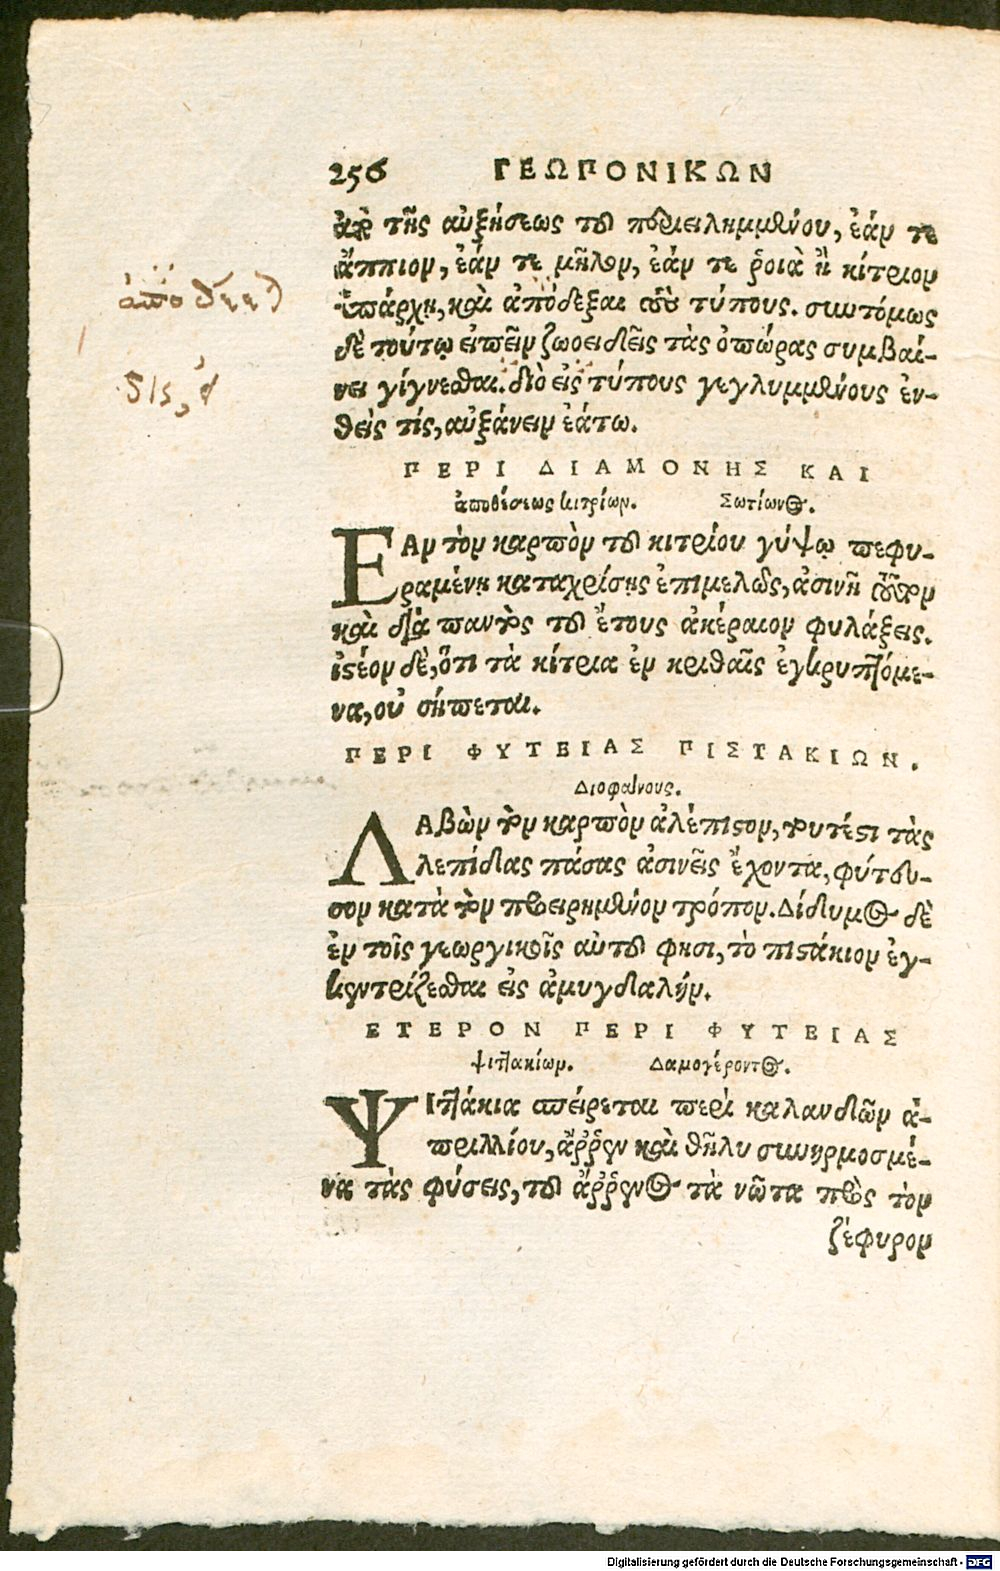 256 ΓΕΩΠΟΝΙΚΩΝ
τῆς αὐξήσεως τοῦ περιειλημμένου, ἐάν τε
ἄππιον, ἐάν τε μῆλον, ἐάν τε ῥοιὰ ἢ κίτριον
ὑπάρχῃ, καὶ ἀπόδεξαι τοὺς τύπους. συντόμως
δὲ τούτῳ εἰπεῖν ζωοειδεῖς τὰς ὀπώρας συμβαί-
νει γίγνεσθαι. διὸ εἰς τύπους γεγλυμμένους ἐν-
θείς τίς, αὐξάνειν ἐάτω.
ΠΕΡΙ ΔΙΑΜΟΝΗΣ ΚΑΙ
ἀποθέσεως κιτρίων. Σωτίωνος.
ΕΑν τὸν καρπὸν τοῦ κιτρίου γύψῳ πεφυ-
ραμένῃ καταχρίσῃς ἐπιμελῶς, ἀσινῆ
καὶ διὰ παντὸς τοῦ ἔτους ἀκέραιον φυλάξεις.
ἰστέον δὲ, ὅτι τὰ κίτρια ἐν κριθαῖς ἐγκρυπτόμε-
να, οὐ σήπεται.
ΠΕΡΙ ΦΥΤΕΙΑΣ ΠΙΣΤΑΚΙΩΝ.
Διοφάνους.
ΛΑβὼν τὸν καρπὸν ἀλέπιστον, τουτέστι τὰς
λεπίδας πάσας ἀσινεῖς ἔχοντα, φύτευ-
σον κατὰ τὸν προειρημένον τρόπον. Δίδυμος δὲ
ἐν τοῖς γεωργικοῖς αὐτοῦ φησι, τὸ πιστάκιον ἐγ-
κεντρίζεσθαι εἰς ἀμυγδαλήν.
ΕΤΕΡΟΝ ΠΕΡΙ ΦΥΤΕΙΑΣ
ψιττακίων. Δαμογέροντος.
ΨΙττάκια σπείρεται περὶ καλανδῶν ἀ-
πριλλίου, ἄῤῥεν καὶ θῆλυ συνηρμοσμέ-
να τὰς φύσεις, τοῦ ἄῤῥενος τὰ νῶτα πρὸς τὸν
ζέφυρον
Digitalisierung gefördert durch die Deutsche Forschungsgemeinschaft - DFG